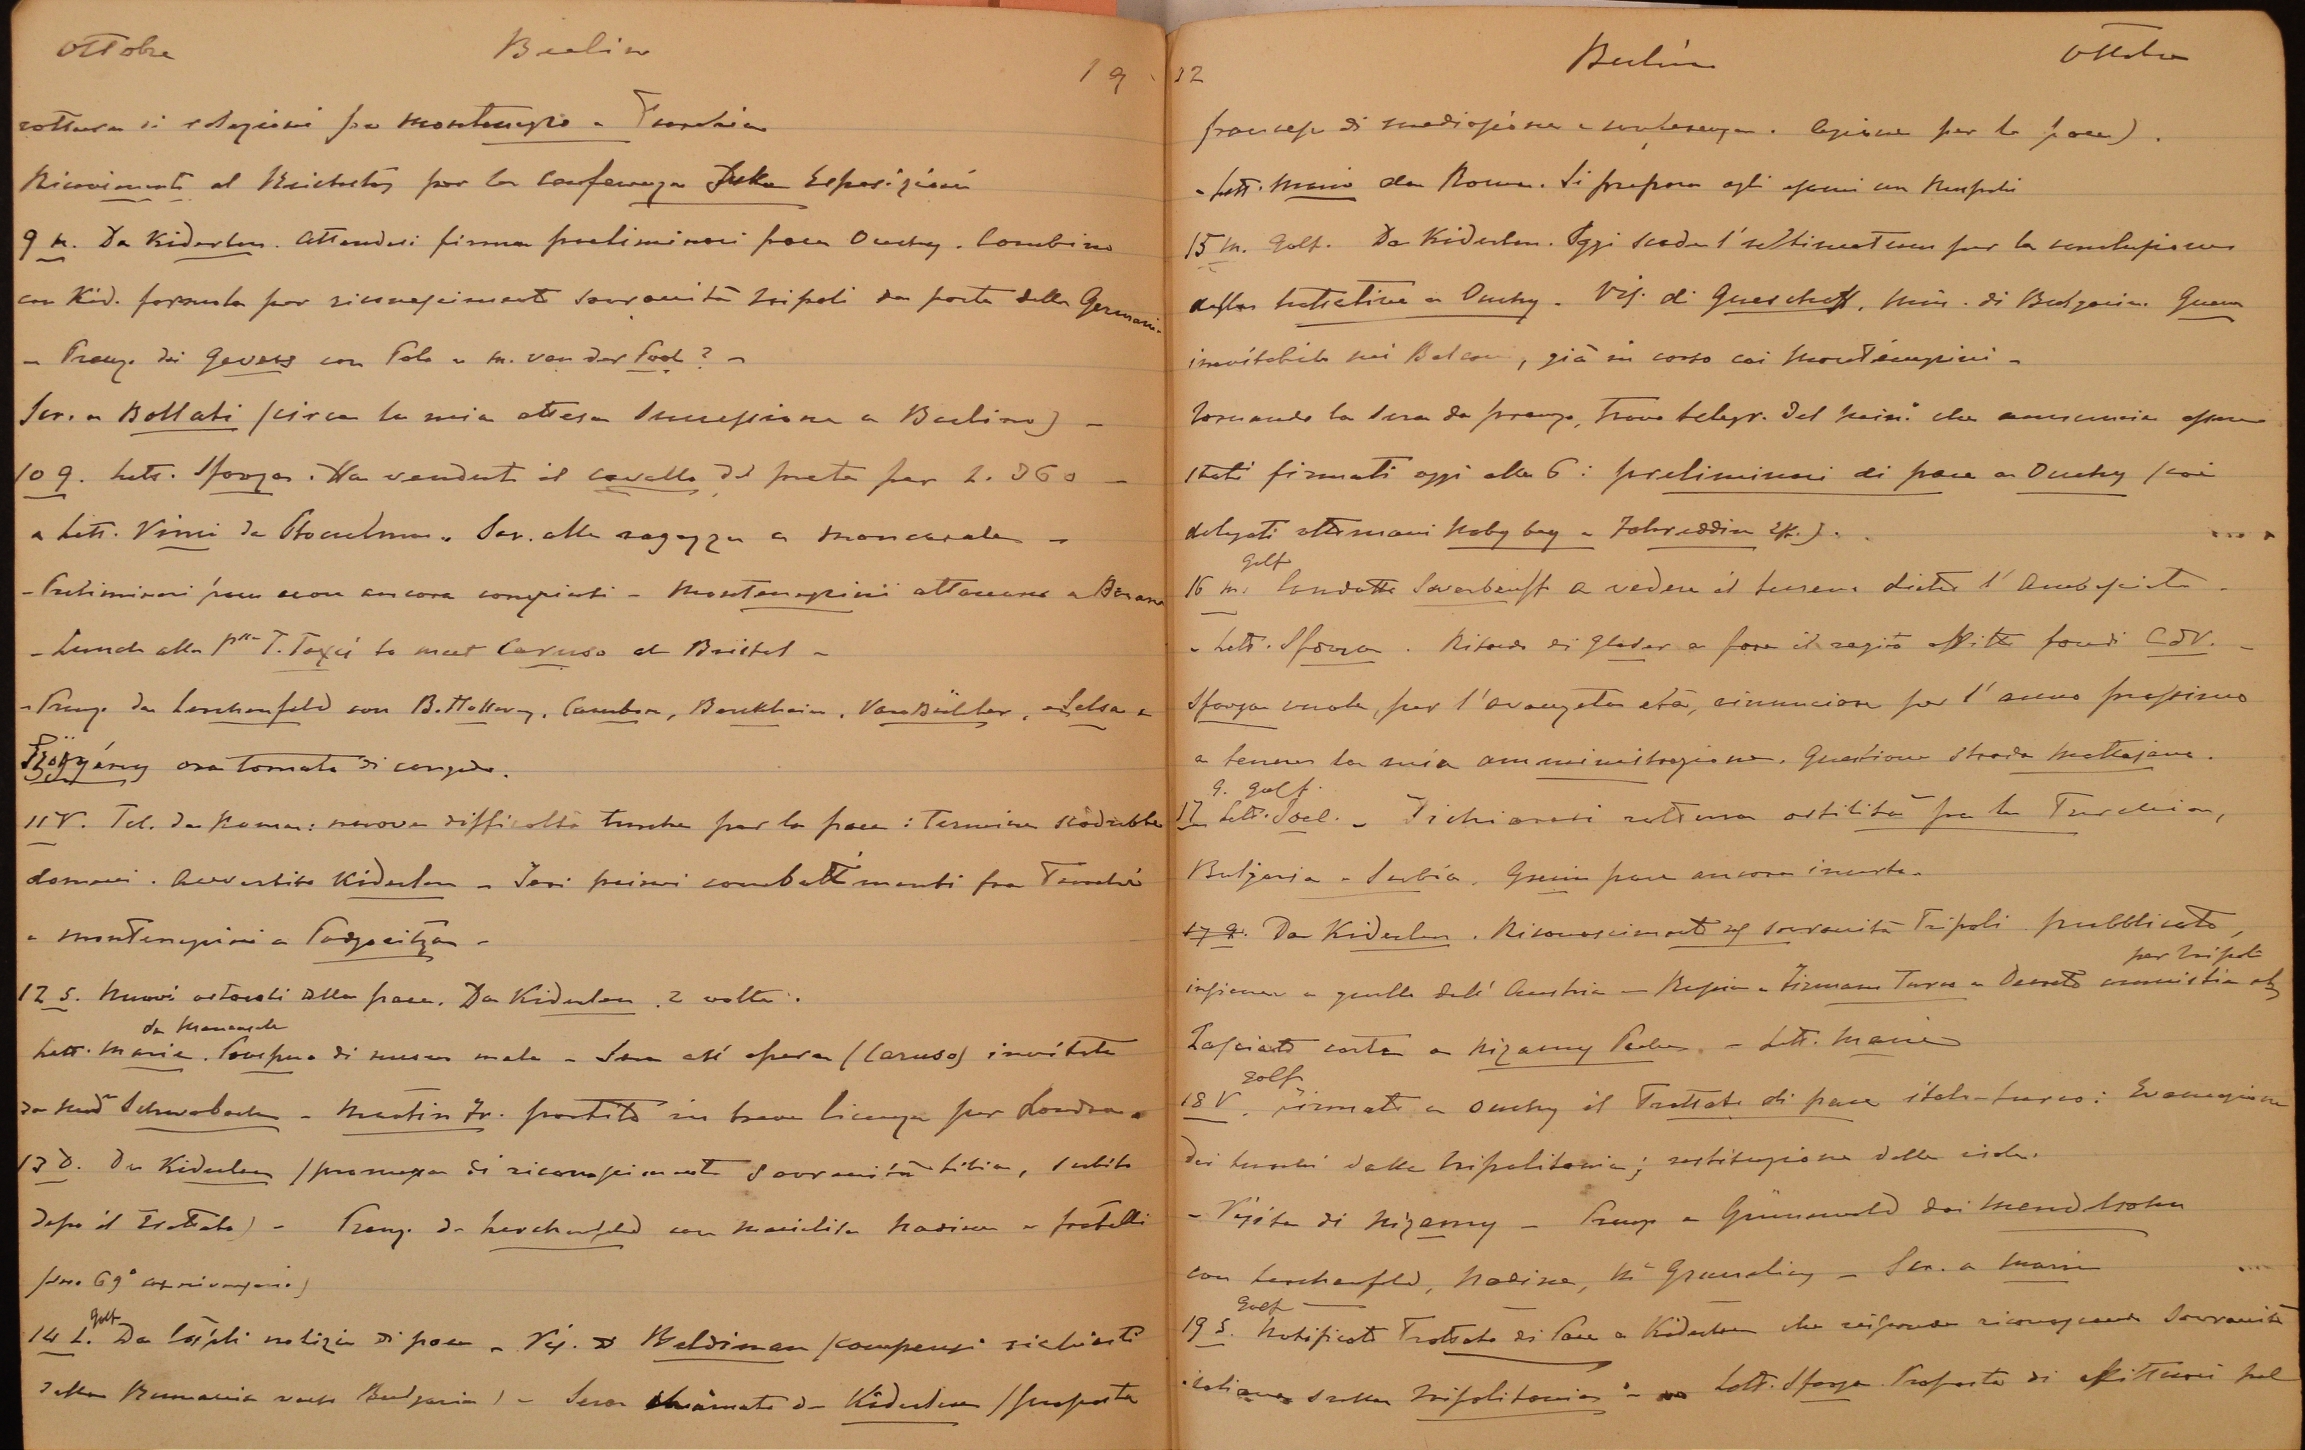 Ottobre Berlino 19
rottura di relazioni fra Montenegro e Turchia
Ricevimenti al Reichstag per la Conferenza Esposizioni
9 M. Da Kiderlen. Attendesi firma preliminari pace Ouchy. Combino
con Kid. formula per riconoscimento sovranità Tripoli da parte della Germania
- Pranzo dai Gevers con Polo e M. van der ? -
Scr. a Bollati (circa la mia attesa successione a Berlino) -
10 G. Lett. Sforza. Ha venduto il cavallo del prete per L. 360 -
e Lett. Vinci da Stocolma. Scr. alla ragazza a Moncucale -
- Preliminari pace non ancora compiuti - Montenegrini attaccano a Berana
- Lunch alla Pssa T. Taxis to meet Caruso al Bristol -
- Pranzo da Lerchenfeld con B. Hollweg, Cambon, Berckheim, Van Bühler, e
Szögyény ora tornato di congedo.
11 V. Tel. da Roma: nuove difficoltà turche per la pace: termine scadrebbe
domani. Avvertito Kiderlen - Ieri primi combattimenti fra Turchi
e Montenegrini a Podgoritza -
12 S. Nuovi ostacoli alla pace. Da Kiderlen 2 volte.
da Moncucale
Lett. Maria. Giuseppe di nuovo male - Sera all'opera (Caruso) invitato
da Mad. Schwabach - Martin Fr. partito in breve licenza per Londra -
13 D. Da Kiderlen (promessa di riconoscimento sovranità Libia, subito
dopo il Trattato) - Pranzo da Lerchenfeld con Nadine e fratelli
(suo 69° anniversario)
golf
14 L. Da notizie di pace - Vis. di Beldiman (compensi richiesti
dalla Rumania verso Bulgaria) - Sera chiamato da Kiderlen (proposta
12 Berlino Ottobre
francese di mediazione e conferenza. Azione per la pace).
- Lett. Mario da Roma. Si prepara agli esami con
15 M. Golf. Da Kiderlen. Oggi scade l'ultimatum per la conclusione
delle trattative a Ouchy. Vis. di Gueschoff, Min. di Bulgaria. Guerra
inevitabile nei Balcani, già in corso coi Montenegrini -
Tornando la sera da pranzo, trovo telegr. del Min.° che annuncia essere
stati firmati oggi alle 6: preliminari di pace a Ouchy (coi
delegati ottomani Naby bey e Fahreddin Ek.).
golf
16 M. Condotto a vedere il terreno dietro l'Ambasciata -
- Lett. Sforza. Ritardo di a fare il rogito affitto fondi CdV. -
Sforza vuole, per l'avanzata età, rinunciare per l'anno prossimo
a tenere la mia amministrazione. Questione strada
G. golf.
17 Lett. Joel. - Dichiarasi rottura ostilità fra la Turchia,
Bulgaria e Serbia. Grecia pare ancora incerta.
17 G. Da Kiderlen. Riconoscimento sovranità Tripoli pubblicato,
per Tripoli
insieme a quello dell'Austria - Russia - Firmano Turco e Decreto amnistia
Lasciato carta a Nizamy Pacha. - Lett. Maria
golf
18 V. Firmato a Ouchy il Trattato di pace italo-turco: Evacuazione
dei turchi dalla Tripolitania; restituzione delle isole.
- Visita di Nizamy - Pranzo a Grünewald dai Mendelssohn
con Lerchenfeld, Nadine, - Scr. a Maria
Golf
19 S. Notificato Trattato di Pace a Kiderlen che risponde riconoscendo sovranità
italiana sulla Tripolitania - Lett. Sforza. Proposta di affittarsi pel